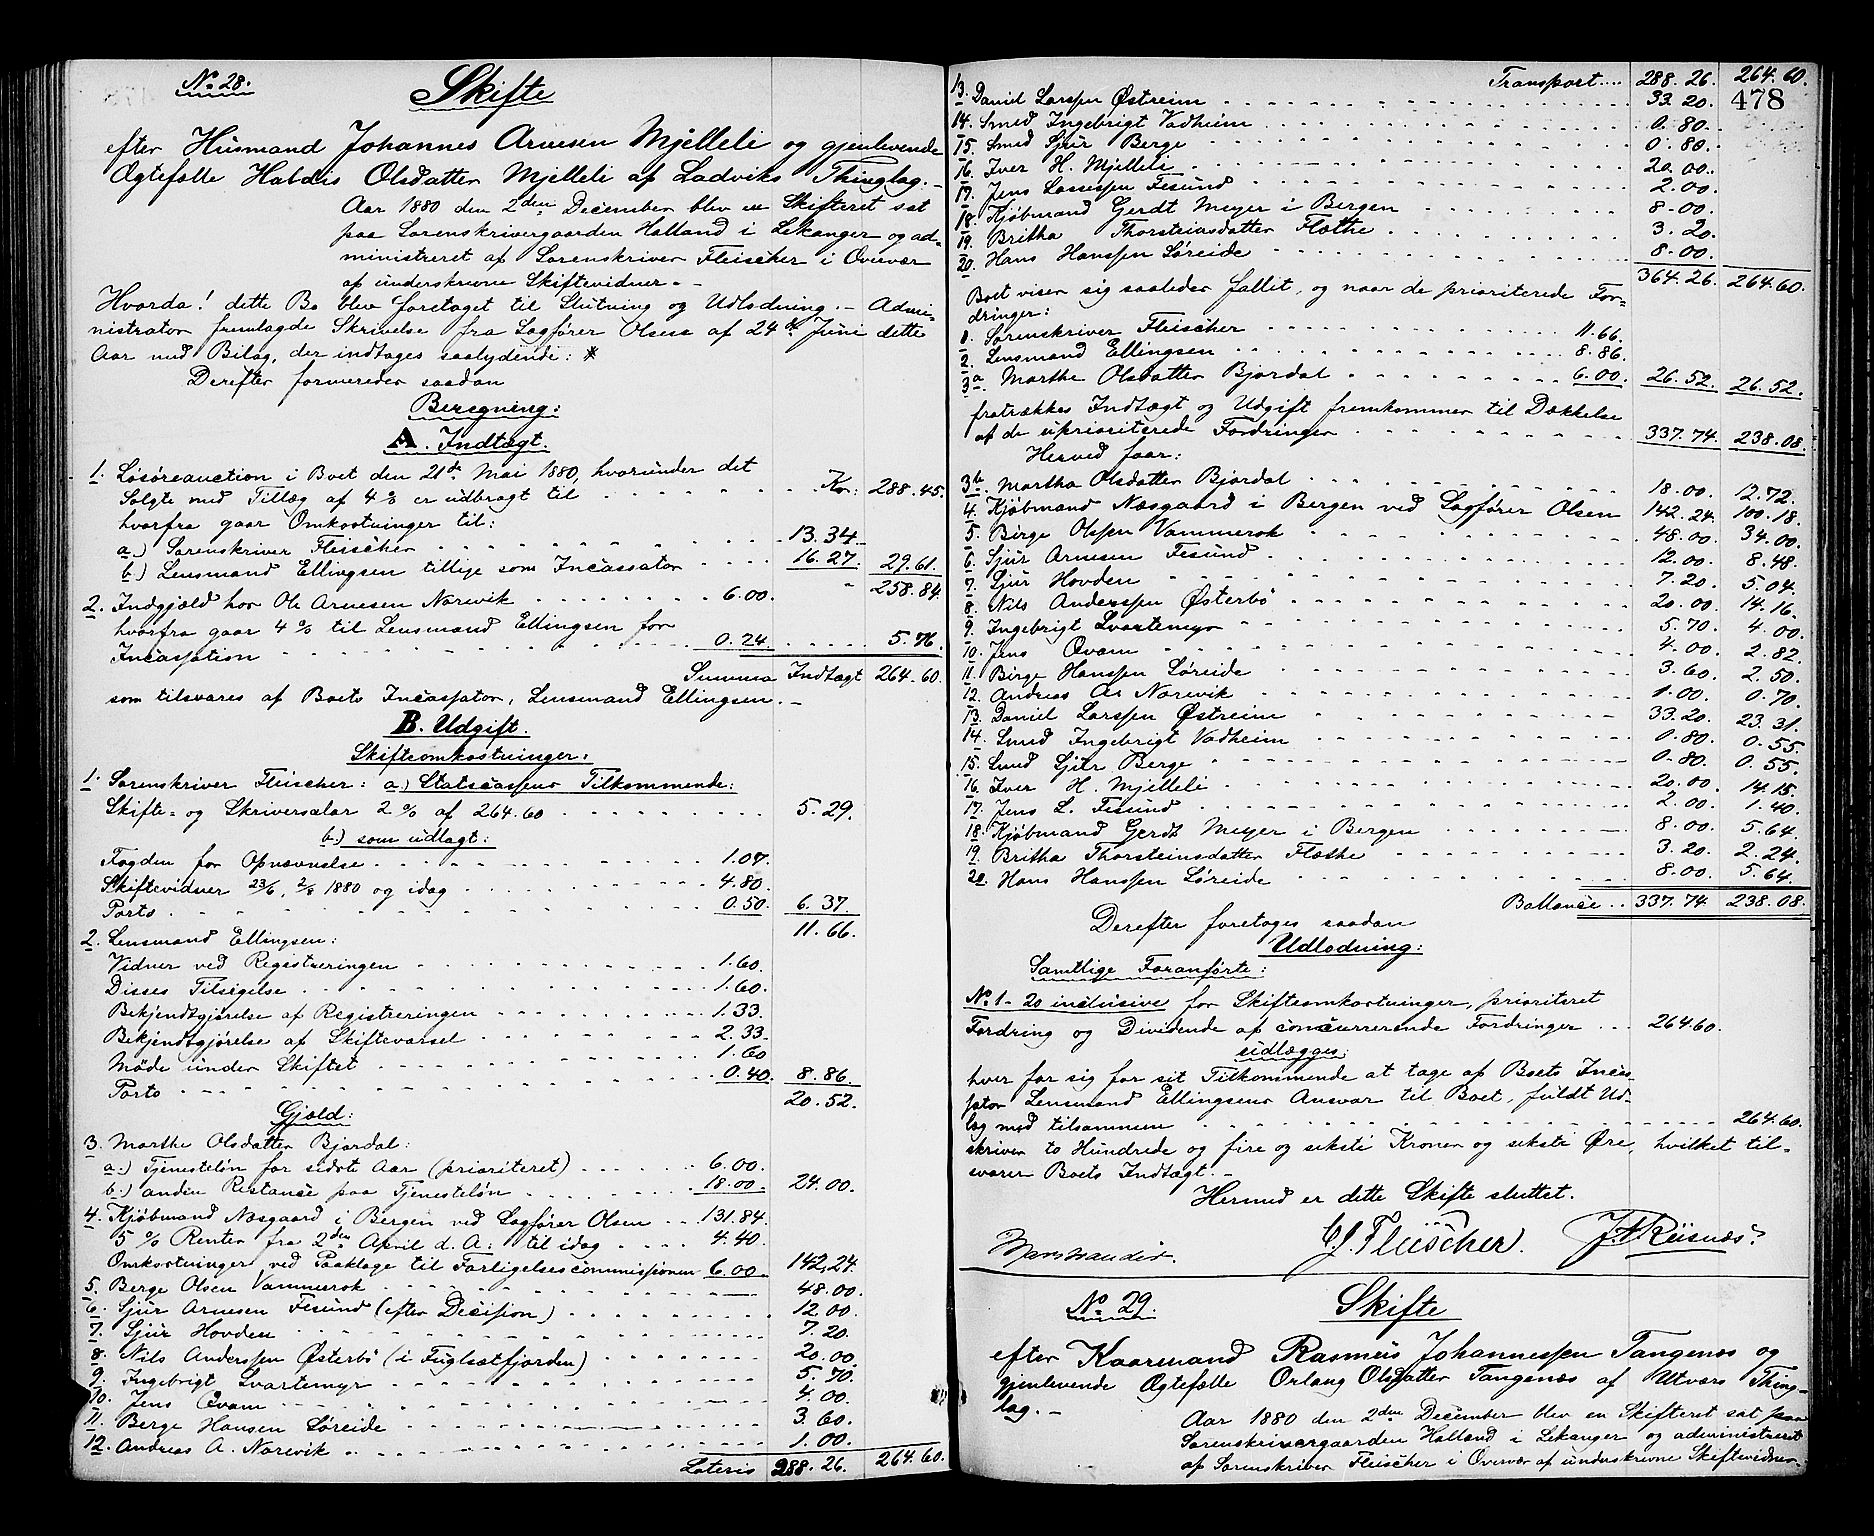 No. 28.
Skifte
efter Husmand Johannes Arnesen Mjelleli og gjenlevende
Ægtefælle Haldis Olsdatter Mjelleli af Ladviks Thinglag. -
Aar 1880 den 2den December blev en Skifteret sat
paa Sorenskrivergaarden Halland i Lekanger og ad-
ministreret af Sorenskriver Fleischer i Overvær
af underskrevne Skiftevidner. -
Hvorda! dette Bo blev foretaget til Slutning og Udlodning. - Admi-
nistrator fremlagde Skrivelse fra Sagfører Olsen af 24de Juni dette
Aar med Bilag, der indtages saalydende: *
Derefter formeredes saadan
Beregning:
A. Indtægt.
1. Løsøreauction i Boet den 21de Mai 1880, hvorunder det
Solgte med Tillæg af 4 % er udbragt til . . . . . . Kr: 288.45.
hvorfra gaar Omkostninger til:
a.) Sorenskriver Fleischer . . . . . . 13.34.
b.) Lensmand Ellingsen tillige som Incassator . . . . 16.27. 29.61.
" 258.84.
2. Indgjæld hos Ole Arnesen Norevik . . . . . . 6.00.
hvorfra gaar 4 % til Lensmand Ellingsen for
Incassation . . . . . . 0.24. . . . . . 5.76.
Summa Indtægt 264.60.
som tilsvares af Boets Incassator, Lensmand Ellingsen. -
B. Udgift.
Skifteomkostninger:
1. Sorenskriver Fleischer: a.) Statscassens Tilkommende:
Skifte- og Skriversalar 2 % af 264.60 . . . . . . 5.29.
b.) som udlagt:
Fogden for Opnævnelse . . . . . . 1.07.
Skiftevidner 23/6, 2/8 1880 og idag . . . . . . 4.80.
Porto . . . . . . 0.50. 6.37.
11.66.
2. Lensmand Ellingsen:
Vidner ved Registreringen . . . . . . 1.60.
Disses Tilsigelse . . . . . . 1.60.
Bekjendtgjørelse af Registreringen . . . . . . 1.33.
Bekjendtgjørelse af Skiftevarsel . . . . . . 2.33.
Møde under Skiftet . . . . . . 1.60
Porto . . . . . . 0.40. 8.86.
20.52.
Gjæld:
3. Marthe Olsdatter Bjordal:
a.) Tjenesteløn for sidste Aar (prioriteret) . . . . . . 6.00.
b.) anden Restance paa Tjenesteløn . . . . . . 18.00. 24.00.
4. Kjøbmand Næsgaard i Bergen ved Sagfører Olsen . . . 131.84.
5 % Renter fra 2den April d. A: til idag . . . . 4.40.
Omkostninger ved Paaklage til Forligelsescommissionen 6.00. 142.24.
5. Berge Olsen Vammerok . . . . . . 48.00.
6. Sjur Arnesen Fesund (efter Decision) . . . . . . 12.00.
7. Sjur Hovden . . . . . . 7.20.
8. Nils Anderssen Østerbø (i Fuglsætfjorden) . . . . . . 20.00.
9. Ingebrigt Svartemyr . . . . . . 5.70.
10. Jens Qvam . . . . . . 4.00.
11. Berge Hansen Søreide . . . . . . 3.60.
12. Andreas A. Norevik . . . . . . 1.00.
Lateris 288.26. 264.60.
478
Transport . . . . 288.26. 264.60.
13. Daniel Larssen Østreim . . . . . . 33.20.
14. Smed Ingebrigt Vadheim . . . . . . 0.80.
15. Smed Sjur Berge . . . . . . 0.80.
16. Iver H. Mjelleli . . . . . . 20.00.
17. Jens Lassessen Fesund . . . . . . 2.00.
18. Kjøbmand Gerdt Meyer i Bergen . . . . . . 8.00.
19. Britha Thorsteinsdatter Flæthe . . . . . . 3.20.
20. Hans Hanssen Søreide . . . . . . 8.00.
364.26. 264.60.
Boet viser sig saaledes fallit, og naar de prioriterede For-
dringer:
1. Sorenskriver Fleischer . . . . . . 11.66.
2. Lensmand Ellingsen . . . . . . 8.86.
3a. Marthe Olsdatter Bjordal . . . . . . 6.00. 26.52. 26.52.
fratrækkes Indtægt og Udgift fremkommer til Dækkelse
af de uprioriterede Fordringer . . . . . . 337.74. 238.08.
Herved faar:
3b. Martha Olsdatter Bjordal . . . . . . 18.00. 12.72.
4. Kjøbmand Næsgaard i Bergen ved Sagfører Olsen 142.24. 100.18.
5. Birge Olssen Vammerok . . . . . . 48.00. 34.00.
6. Sjur Arnesen Fesund . . . . . . 12.00. 8.48.
7. Sjur Hovden . . . . . . 7.20. 5.04.
8. Nils Anderssen Østerbø . . . . . . 20.00. 14.16.
9. Ingebrigt Svartemyr . . . . . . 5.70. 4.00.
10. Jens Qvam . . . . . . 4.00. 2.82.
11. Birge Hanssen Søreide . . . . . . 3.60. 2.50.
12. Andreas As Norevik . . . . . . 1.00. 0.70.
13. Daniel Larssen Østreim . . . . . . 33.20. 23.31.
14. Smed Ingebrigt Vadheim . . . . . . 0.80. 0.55.
15. Smed Sjur Berge . . . . . . 0.80. 0.55.
16. Iver H. Mjelleli . . . . . . 20.00. 14.15.
17. Jens L. Fesund . . . . . . 2.00. 1.40.
18. Kjøbmand Gerdt Meyer i Bergen . . . . . . 8.00. 5.64.
19. Britha Thorsteinsdatter Flæthe . . . . . . 3.20. 2.24.
20. Hans Hanssen Søreide . . . . . . 8.00. 5.64.
Ballance . . 337.74. 238.08.
Derefter foretages saadan
Udlodning:
Samtlige Foranførte:
No. 1 - 20 inclusive for Skifteomkostninger, prioriteret
Fordring og Dividende af concurrerende Fordringer . . . 264.60.
udlægges:
hver for sig for sit Tilkommende at tage af Boets Incas-
sator Lensmand Ellingsens Ansvar til Boet, fuldt Ud-
læg med tilsammen . . . . . . 264.60.
skriver to Hundrede og fire og seksti Kroner og seksti Øre, hvilket til-
svarer Boets Indtægt. -
Hermed er dette Skifte sluttet.
C. Fleischer. J. A. Riisnæs.
No. 29.
Skifte
efter Kaarmand Rasmus Johannessen Tangenæs og
gjenlevende Ægtefælle Orlang Olsdatter Tangenæs af Utvers Thing-
lag. -
Aar 1880 den 2den December blev en Skifteret sat paa
Sorenskrivergaarden Halland i Lekanger og administreret
af Sorenskriver Fleischer i Overvær af underskrevne Skiftevidner.